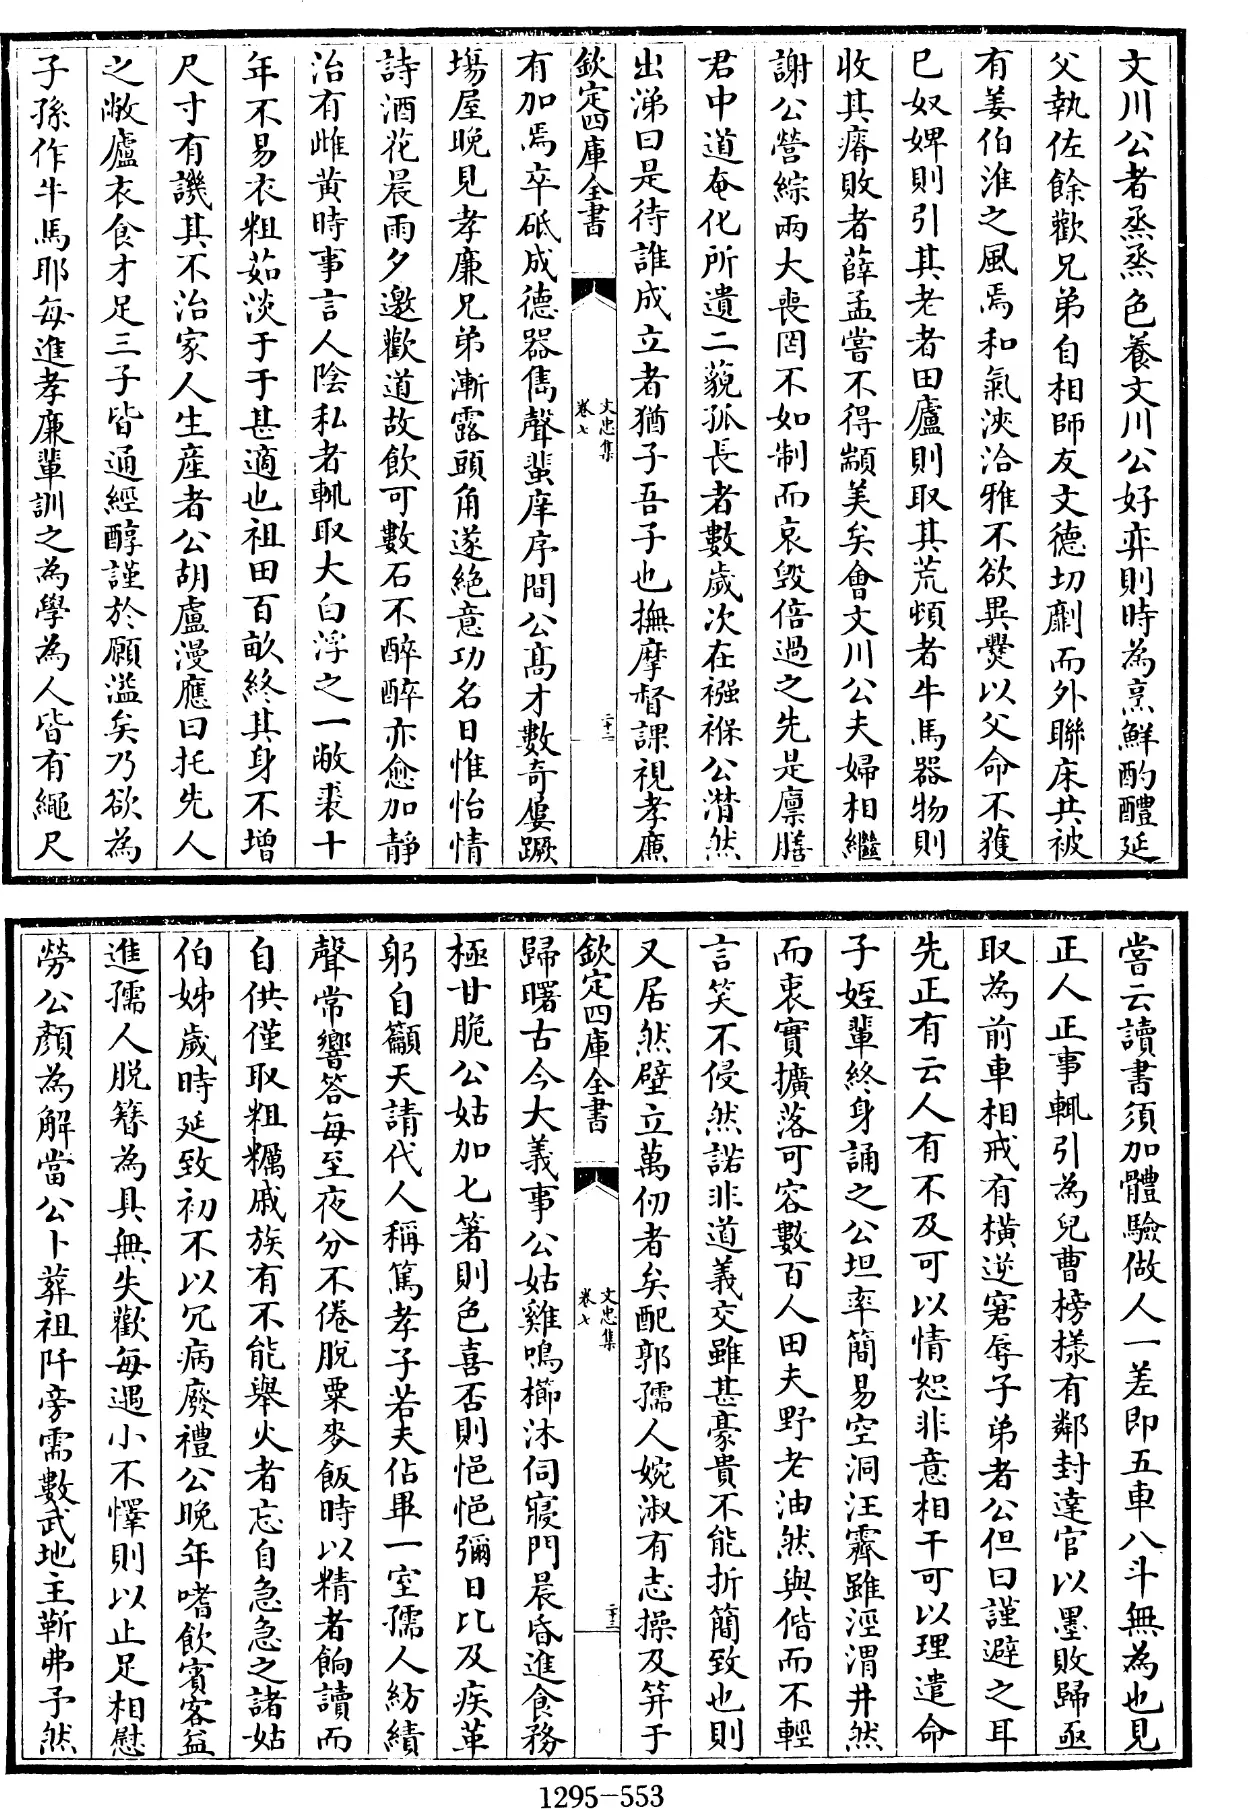 文川公者烝烝色養文川公好弈則時為烹鮮酌醴延
父執佐餘歡兄弟自相師友文德切劘而外聯床共被
有姜伯淮之風焉和氣浹洽雅不欲異爨以父命不獲
已奴婢則引其老者田廬則取其荒頓者牛馬器物則
收其瘠敗者薛孟嘗不得顓美矣會文川公夫婦相繼
謝公營綜兩大喪罔不如制而哀毀倍過之先是廩膳
君中道奄化所遺二藐孤長者數歲次在襁褓公潸然
出涕曰是待誰成立者猶子吾子也撫摩督課視孝廉
欽定四庫全書
文忠集
卷七
二十二
有加焉卒砥成德器雋聲蜚庠序間公髙才數奇屢蹶
塲屋晩見孝廉兄弟漸露頭角遂絶意功名日惟怡情
詩酒花晨雨夕邀歡道故飲可數石不醉醉亦愈加靜
治有雌黄時事言人陰私者輒取大白浮之一敝裘十
年不易衣粗茹淡于于甚適也祖田百畝終其身不增
尺寸有譏其不治家人生産者公胡盧漫應曰托先人
之敝廬衣食才足三子皆通經醇謹於願溢矣乃欲為
子孫作牛馬耶每進孝廉輩訓之為學為人皆有繩尺
嘗云讀書須加體驗做人一差即五車八斗無為也見
正人正事輒引為兒曹榜樣有鄰封達官以墨敗歸亟
取為前車相戒有横逆窘辱子弟者公但曰謹避之耳
先正有云人有不及可以情恕非意相干可以理遣命
子姪輩終身誦之公坦率簡易空洞汪霽雖涇渭井然
而衷實擴落可容數百人田夫野老油然與偕而不輕
言笑不侵然諾非道義交雖甚豪貴不能折簡致也則
又居然壁立萬仞者矣配郭孺人婉淑有志操及笄于
欽定四庫全書
文忠集
卷七
二十三
歸曙古今大義事公姑雞鳴櫛沐伺寢門晨昏進食務
極甘脆公姑加匕箸則色喜否則悒悒彌日比及疾革
躬自籲天請代人稱篤孝子若夫佔畢一室孺人紡績
聲常響答每至夜分不倦脱粟麥飯時以精者餉讀而
自供僅取粗糲戚族有不能舉火者忘自急急之諸姑
伯姊歲時延致初不以冗病廢禮公晩年嗜飲賓客益
進孺人脱簪為具無失歡每遇小不懌則以止足相慰
勞公顏為解當公卜葬祖阡旁需數武地主靳弗予然
1295-553